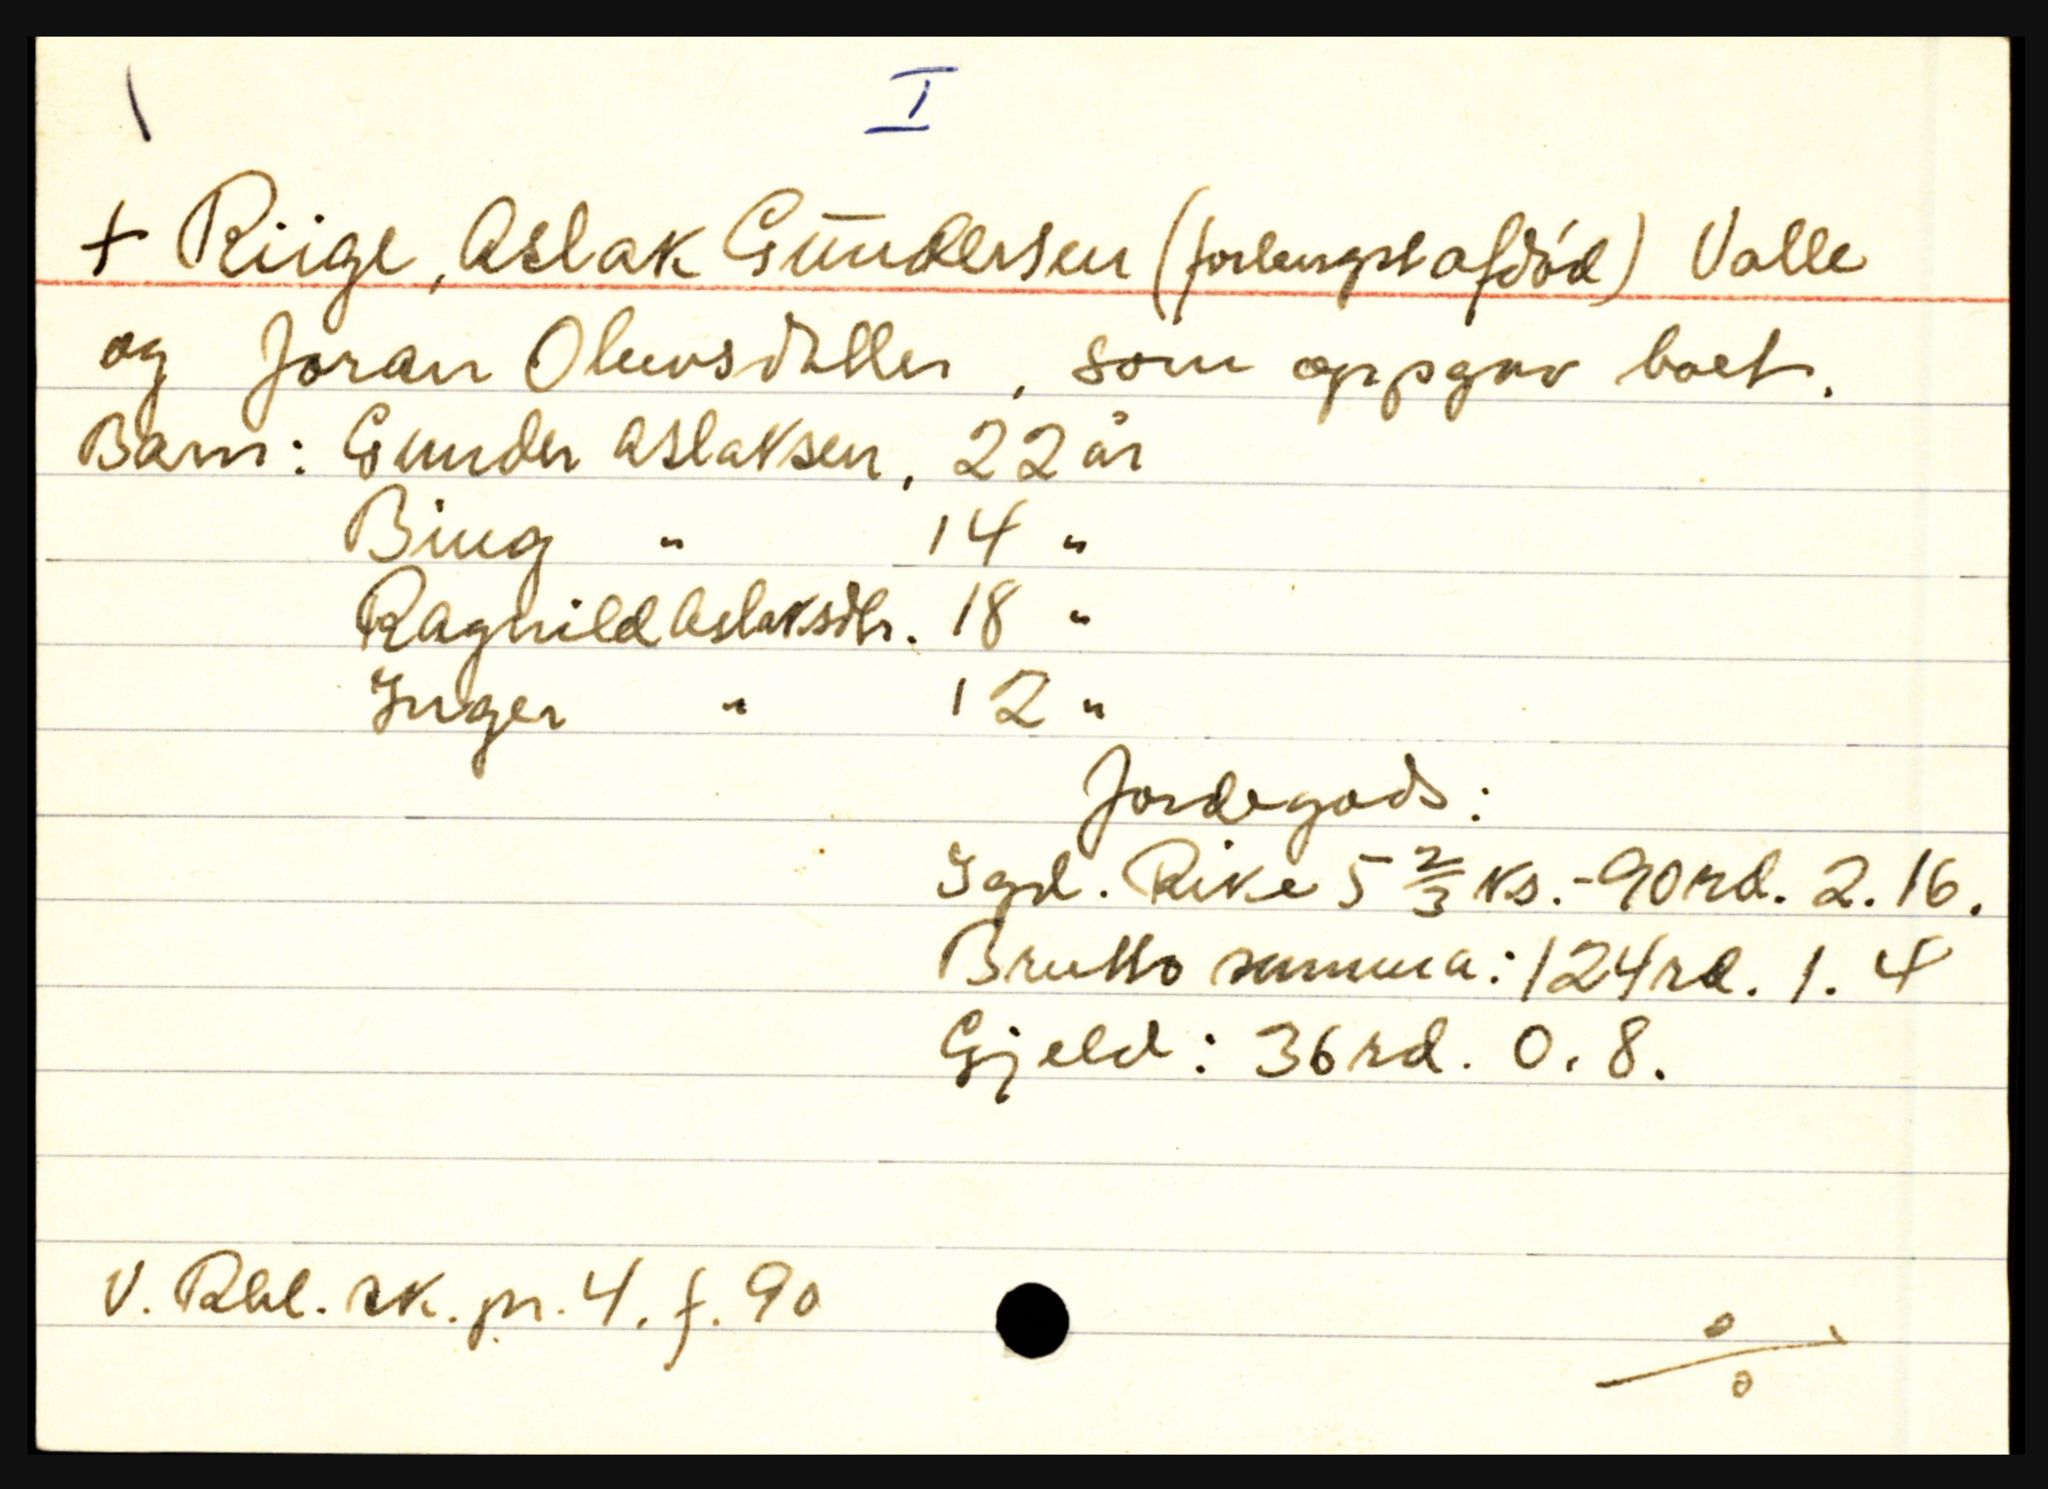 I
+ Riige, Aslak Gundersen (forlengst afdød) Valle
og Joran Oluvsdatter, som oppgav boet.
Barn: Gunder Aslaksen, 22 år
Biug " 14 "
Ragnild Aslaksdtr. 18 "
Inger " 12 "
Jordegods:
Igd. Rike 5 2/3 ks. - 90 rd. 2. 16.
Brutto summa: 124 rd. 1. 4
Gjeld: 36 rd. 0. 8.
V. Rbl. sk. pr. 4. f. 90